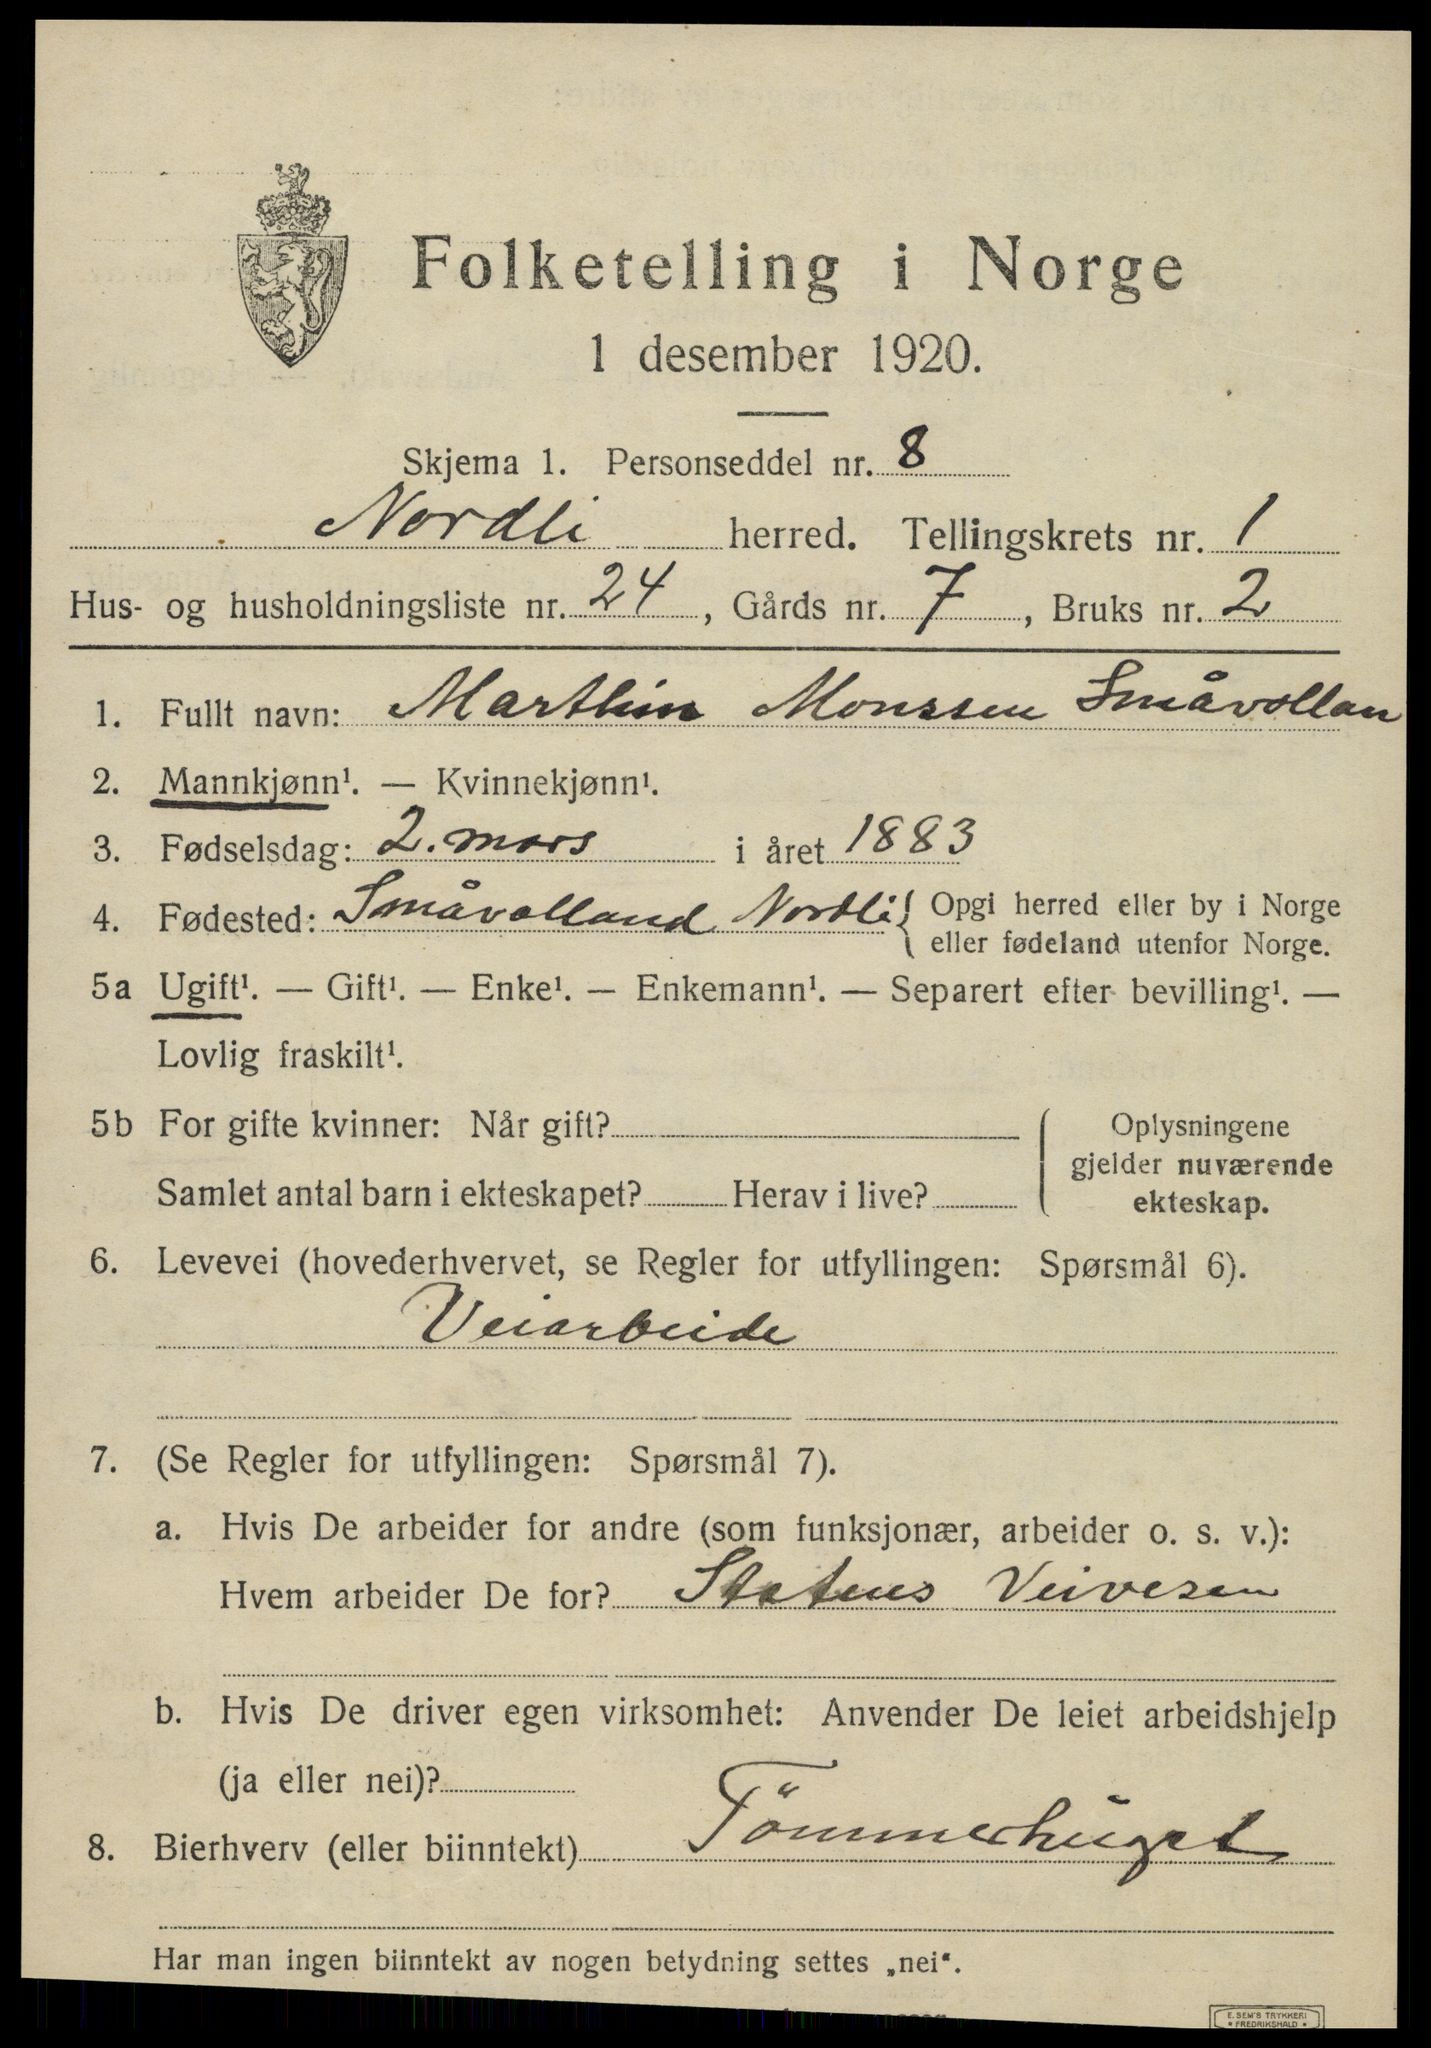 Folketelling i Norge
1 desember 1920.
Skjema 1. Personseddel nr. 8
Nordli herred. Tellingskrets nr. 1
Hus- og husholdningsliste nr. 24, Gårds nr. 7, Bruks nr. 2
1. Fullt navn: Marthin Monssen Småvollan
2. Mannkjønn¹. — Kvinnekjønn¹.
3. Fødselsdag: 2. mars i året 1883
4. Fødested: Småvolland Nordli { Opgi herred eller by i Norge
eller fødeland utenfor Norge.
5a Ugift¹. — Gift¹. — Enke¹. — Enkemann¹. — Separert efter bevilling¹. —
Lovlig fraskilt¹.
5b For gifte kvinner: Når gift?
Samlet antal barn i ekteskapet? Herav i live?
Oplysningene
gjelder nuværende
ekteskap.
6. Levevei (hovederhvervet, se Regler for utfyllingen: Spørsmål 6).
Veiarbeide
7. (Se Regler for utfyllingen: Spørsmål 7).
a. Hvis De arbeider for andre (som funksjonær, arbeider o. s. v.):
Hvem arbeider De for? Statens Veivesen
b. Hvis De driver egen virksomhet: Anvender De leiet arbeidshjelp
(ja eller nei)?
8. Bierhverv (eller biinntekt) Tömmerhugst
Har man ingen biinntekt av nogen betydning settes „nei“.
E. SEM'S TRYKKERI
* FREDRIKSHALD *